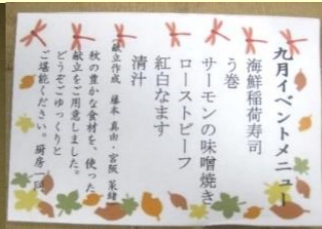 九月イベントメニュー
海鮮稲荷寿司
う巻
サーモンの味噌焼き
ローストビーフ
紅白なます
清汁
献立作成 藤本 真由・宮阪 菜緒
秋の豊かな食材を、使った
献立をご用意しました。
どうぞごゆっくりと
ご堪能ください。厨房一同